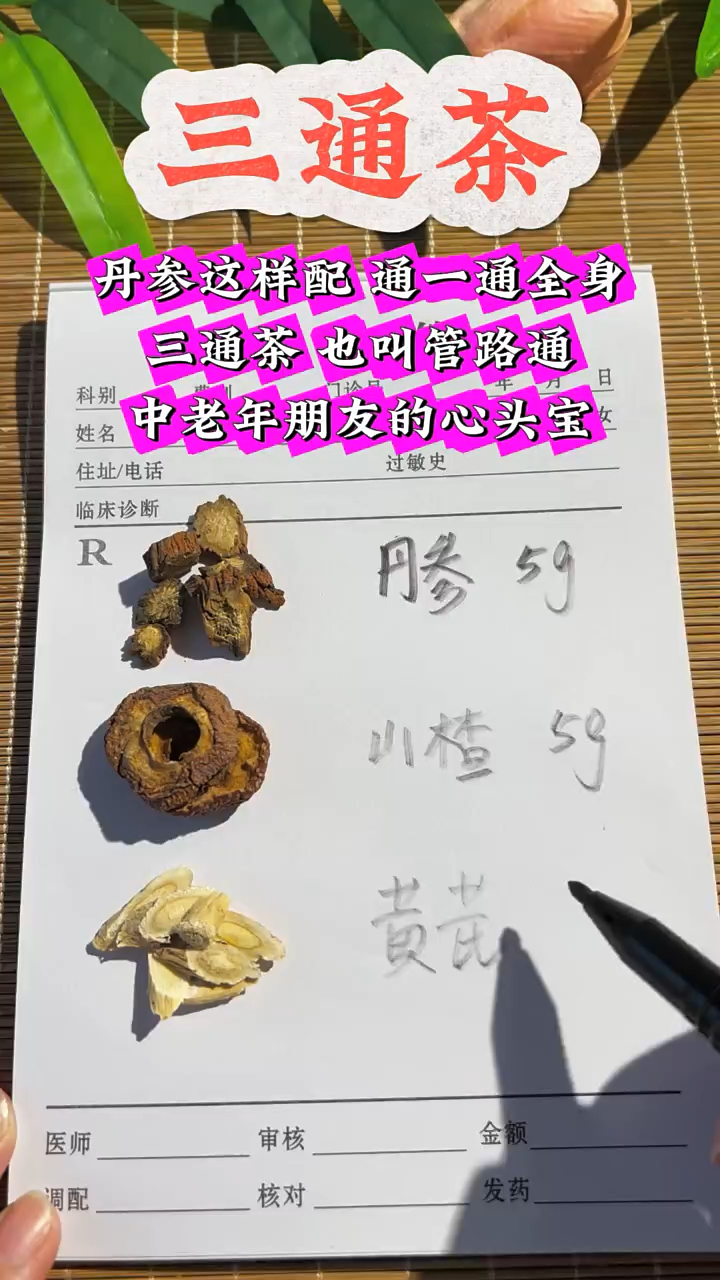 三通茶
丹参这样配 通一通全身
三通茶 也叫管路通
中老年朋友的心头宝
科别 门诊号 年 月 日
姓名 女
住址/电话 过敏史
临床诊断
R
丹参 5g
山楂 5g
黄芪
医师 审核 金额
调配 核对 发药